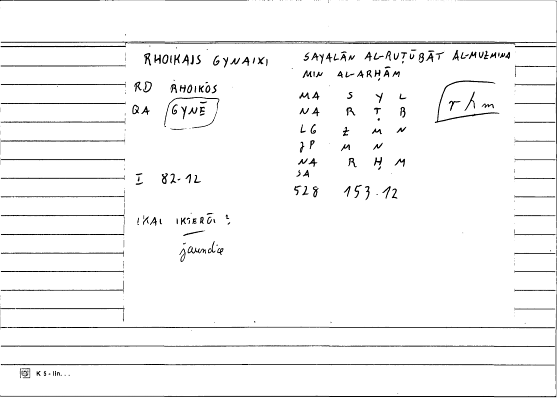 RHOIKAIS GYNAIXI
RD RHOIKOS
QA GYNĒ
I 82-12
IKAI IKTERŌI ?
jaundice
SAYALĀN AL-RUṬŪBĀT AL-MUZMINA
MIN AL-ARḤĀM
MA S Y L
NA R Ṭ B
LG Z M N
JP M N
NA R Ḥ M
SA
528 153.12
rhm
K 5 - lin...